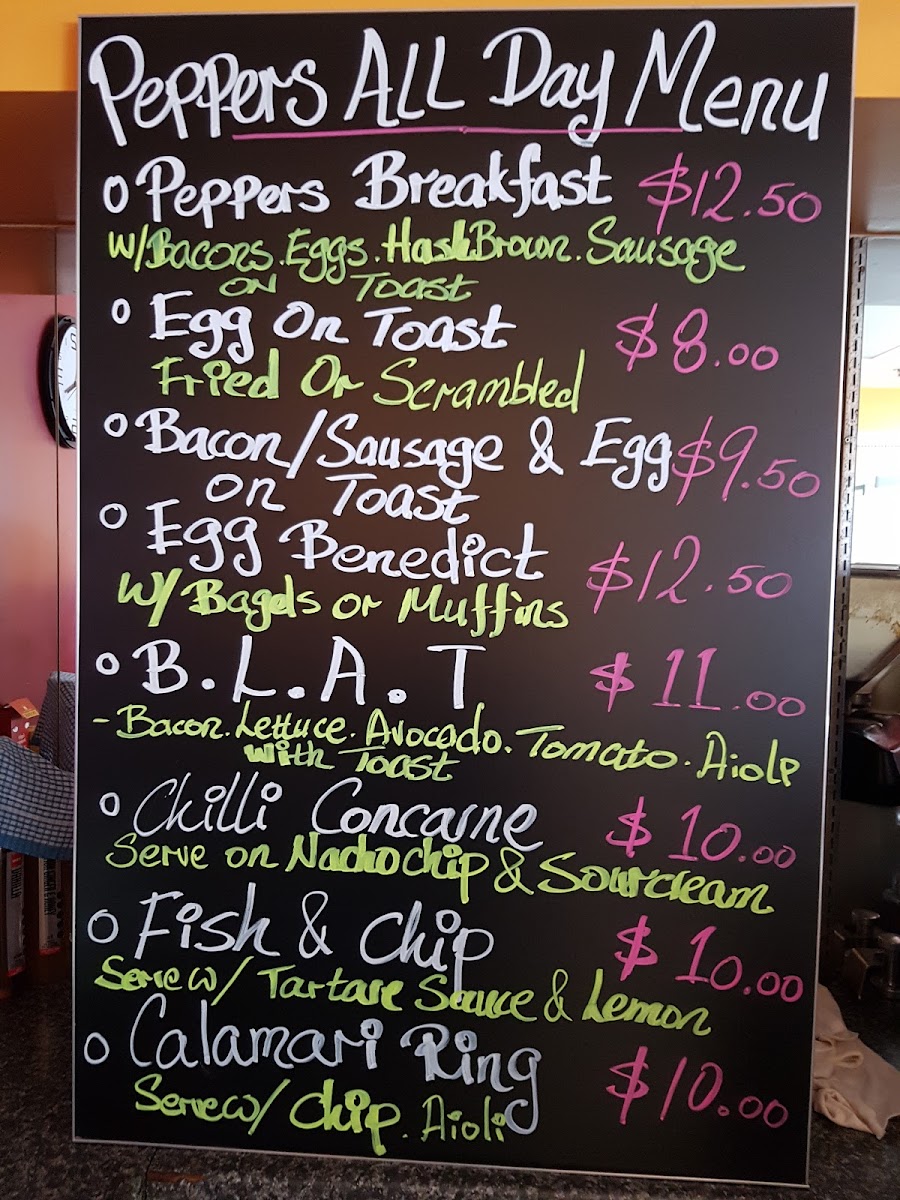 Peppers ALL Day Menu
Peppers Breakfast $12.50
w/Bacons.Eggs.HashBrown.Sausage
on Toast
Egg On Toast $8.00
Fried Or Scrambled
Bacon/Sausage & Egg $9.50
on Toast
Egg Benedict $12.50
w/ Bagels or Muffins
B.L.A.T $11.00
- Bacon.Lettuce.Avocado.Tomato.Aioli
with Toast
Chilli Concarne $10.00
Serve on Nachochip & Sourcream
Fish & Chip $10.00
Serve w/ Tartare Sauce & Lemon
Calamari Ring $10.00
Serve w/ Chip.Aioli